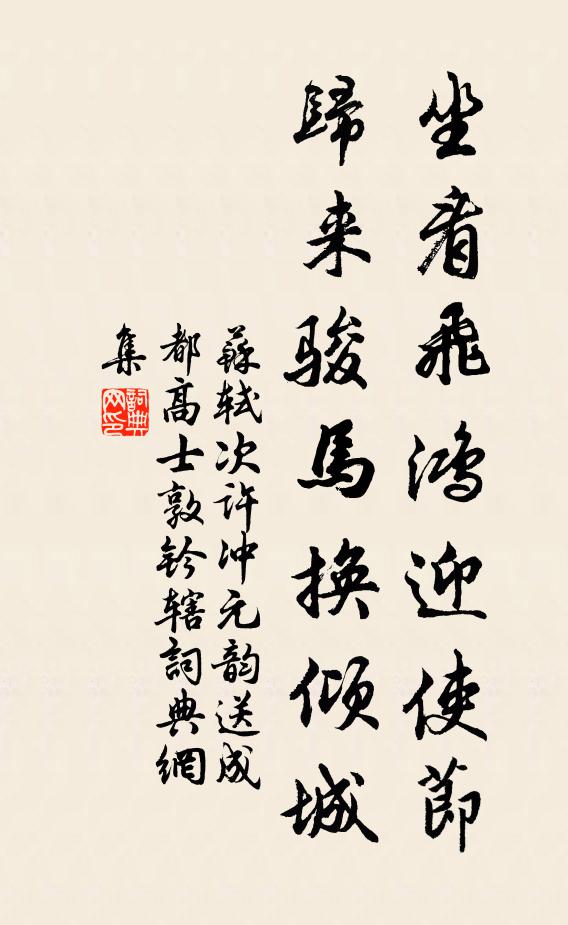 坐看飛鴻迎使節
歸来駿馬換傾城
蘇軾次许沖元韵送成
都高士敦鈐轄詞典網
集
詞典网印